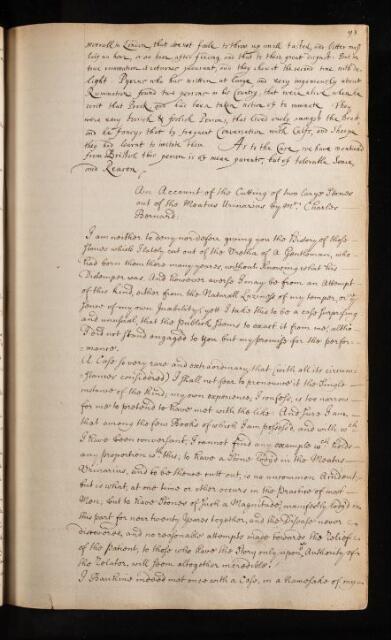 93
morsell in Lemon, that do not faile to throw up
in true rumination it returns pleasant, and they chew it the second time with de-
light. Pyerus who has written at large and very ingeniously about
Rumination found two persons in his Country, that were alive when he
writ that Book and has been taken notice of to ruminate. They
were very foolish Persons, that lived only amongst the Beasts,
and he fancys that by frequent Conversation with Calfs, and Sheeps
they had learnt to imitate them. As to the Case, we have mentioned
from Bristol this person is of parents, but of tolerable Sense,
and Reason.
An Account of the Cutting of two large Stones
out of the Meatus Urinarius by Mr. Charles
Bernard:
I am neither to deny nor defere giving you the History of those
Stones which I lately cut out of the Urethra of a Gentleman, who
had born them there many yeares, without knowing what his
Distemper was. And however averse I may be from an Attempt
of this kind, either from the Naturall Laziness of my temper, or ye
Sense of my own Inability; yett I take this to be a case so surprising
and unusual, that the Publick seems to exact it from me; altho
I did not stand engaged to you by my promise for the perfor-
mance.
A Case so very rare and extraordinary that (with all its circum-
stances considered) I shall not fear to pronounce it the Single
instance of the kind; my own experience, I confess, is too narrow
for me to pretend to have met with the like. And sure I am,
that among the few Books of which I am possessed, and with wch
I have been conversant, I cannot find any example wch holds
any proportion wth this; to have a Stone lodg'd in the Meatus
Urinarius, and to be thence cutt out, is no uncommon Accident,
but is what, at one time or other occurs in the Practice of most
Men; but to have Stones of such a Magnitude, manifestly lodg'd in
this part for near twenty Yeares together, and the Disease never
discovered, and no reasonable attempts made towards the Relief
of the Patient, to those who have the Story only upon ye Authority of
the Relator, will seem altogether incredible.
I Bauhine indeed met once with a Case, in a Namesake of my